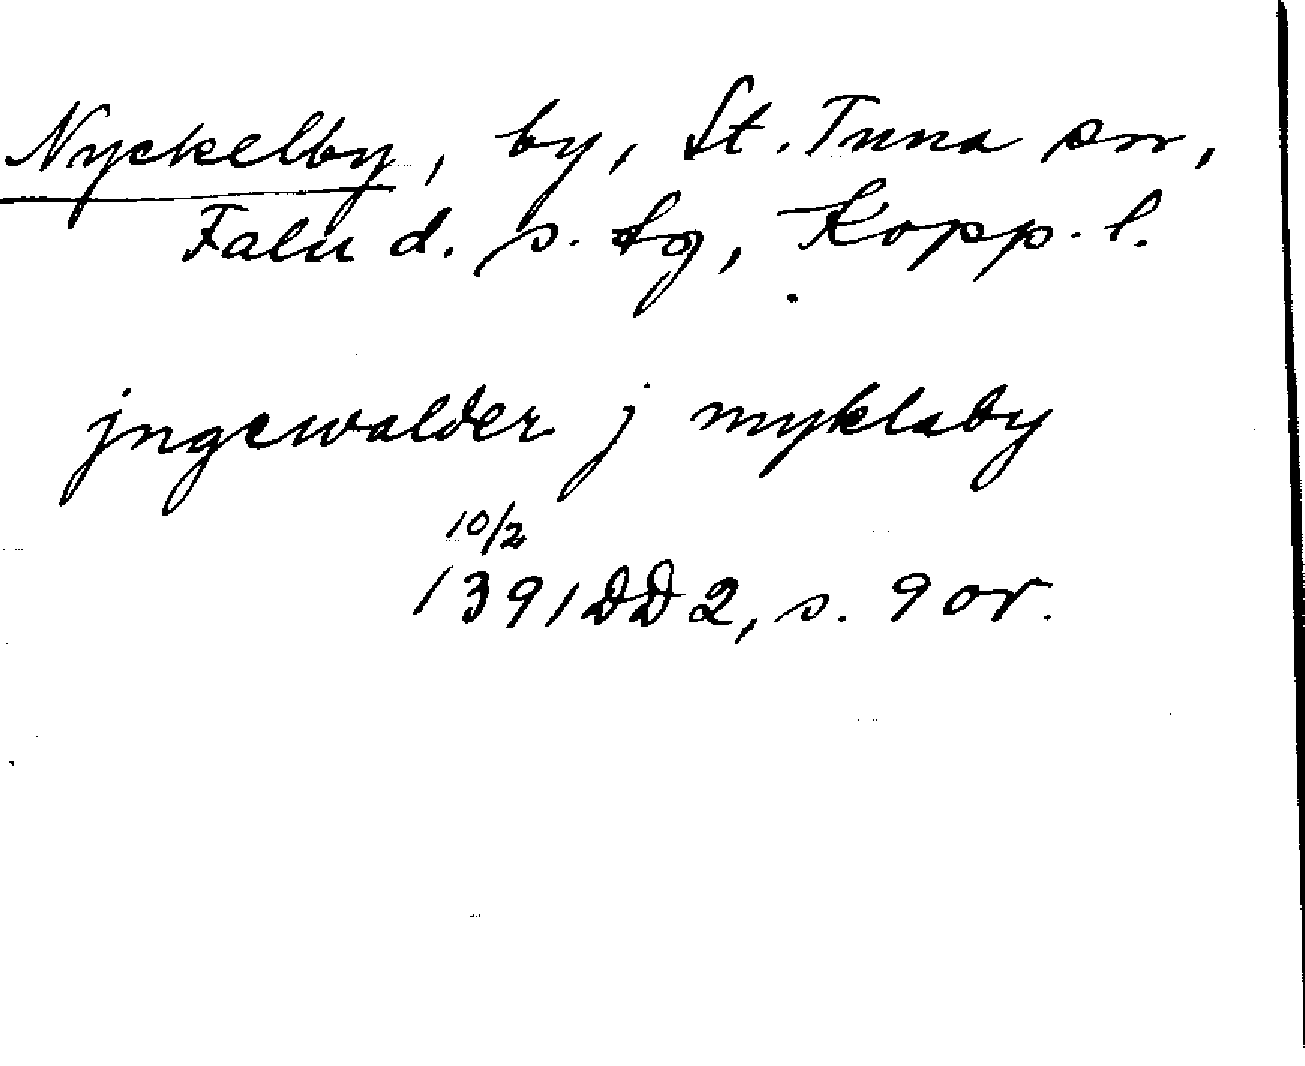 Nyckelby, by, St. Tuna sn,
Falu d. s. tg, Kopp. l.
jngewalder j myklaby
10/2
1391 DD 2, s. 9 or.